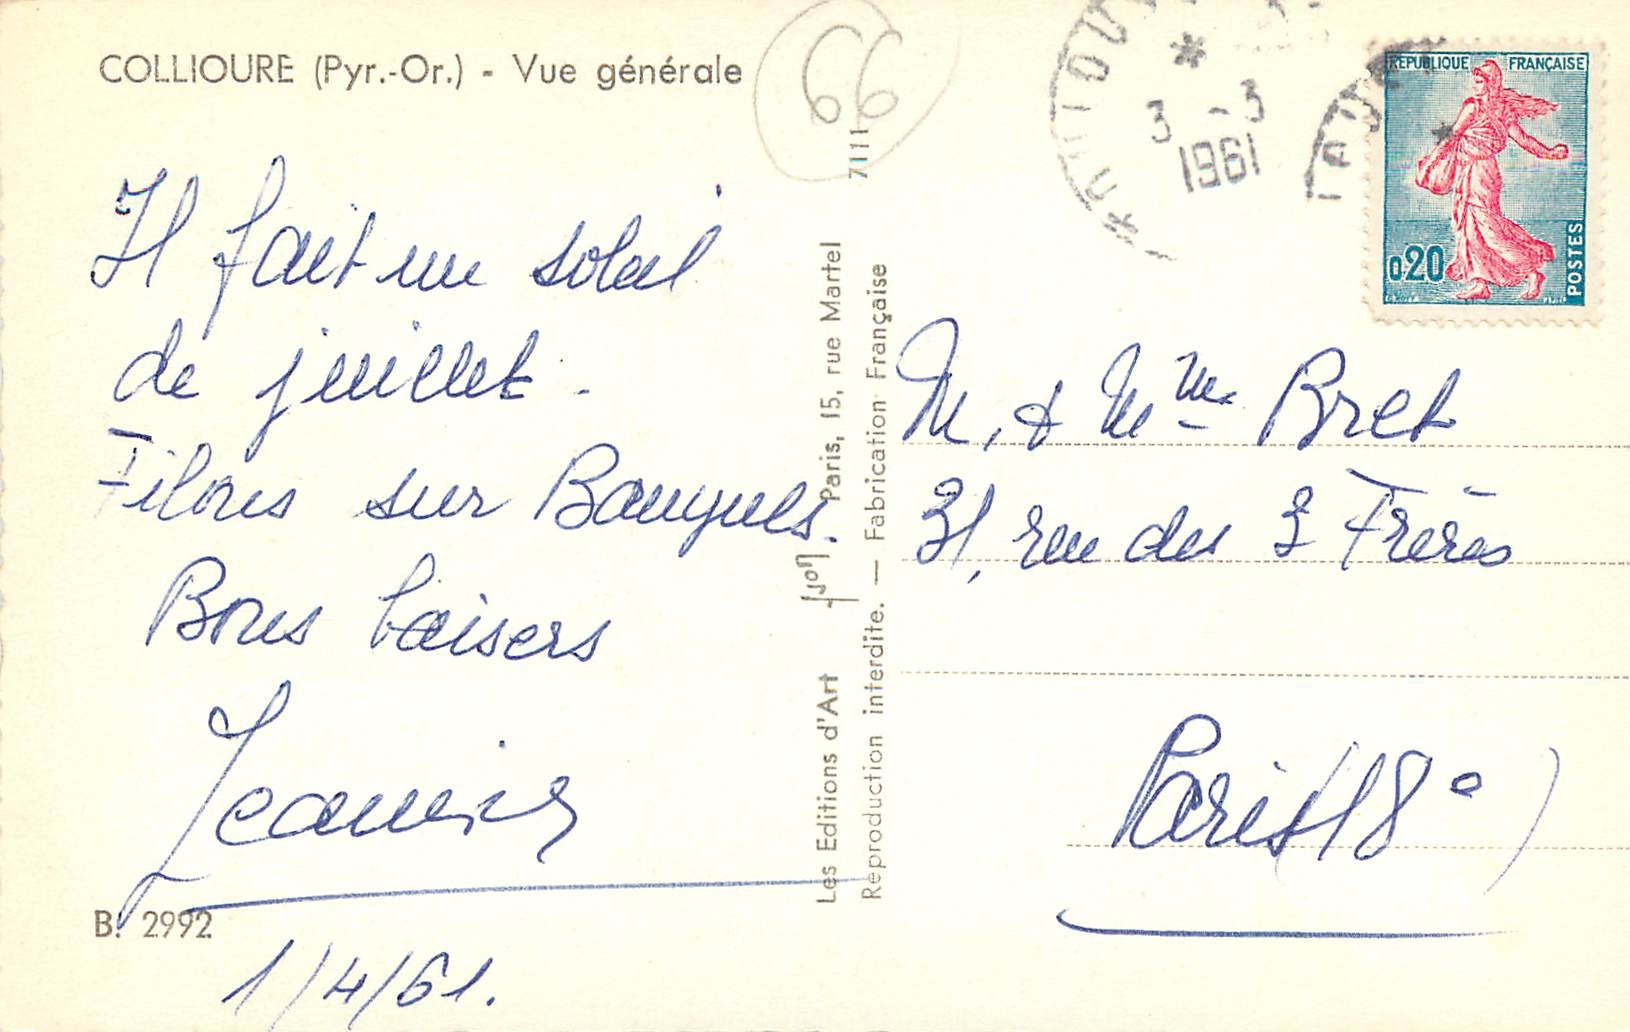 COLLIOURE (Pyr.-Or.) - Vue générale
66
Il fait un soleil
de juillet.
Filons sur Banyuls.
Bons baisers
Jeannine
B. 2992
1/4/61.
Les Editions d'Art yvon Paris, 15, rue Martel
Reproduction interdite. — Fabrication Française
7111
3 - 3
1961
RÉPUBLIQUE FRANÇAISE
0,20
POSTES
M. & Mme Bret
31, rue des 3 Frères
Paris (18e)